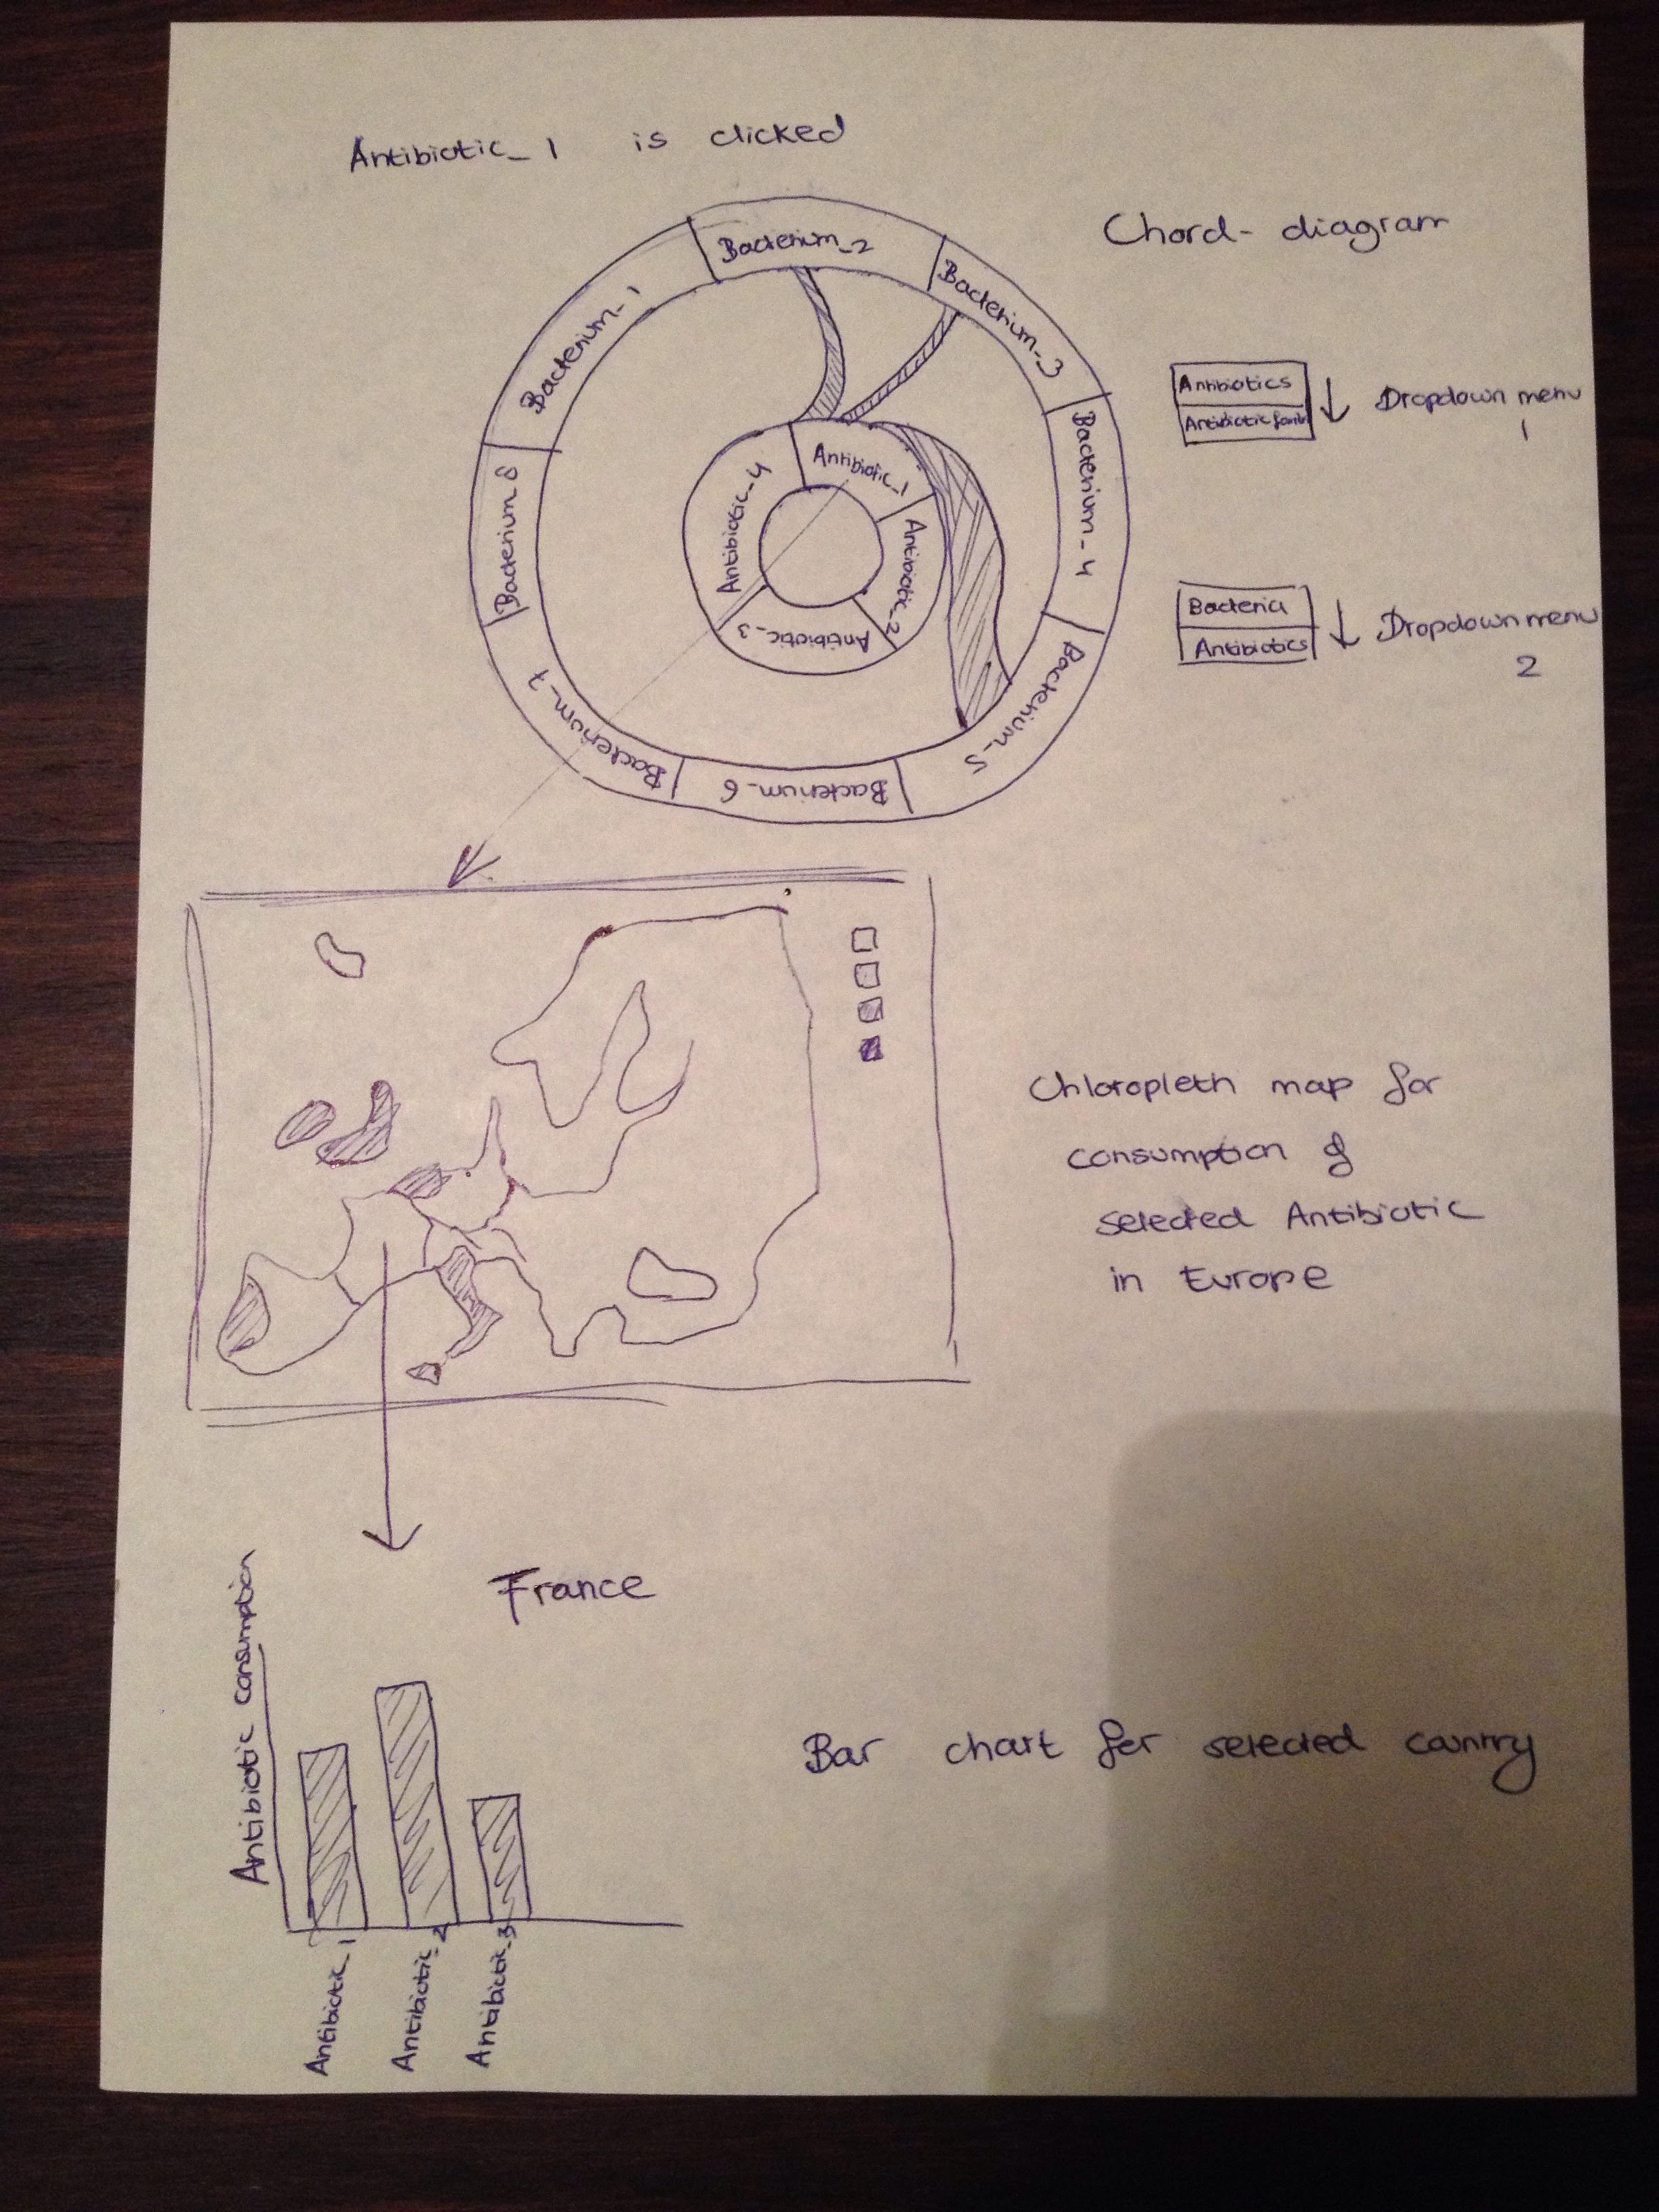 Antibiotic_1 is clicked
Chord-diagram
Bacterium_1
Bacterium_2
Bacterium_3
Bacterium_4
Bacterium_5
Bacterium_6
Bacterium_7
Bacterium_8
Antibiotic_1
Antibiotic_2
Antibiotic_3
Antibiotic_4
Antibiotics
Antibiotic
Dropdown menu
1
Bacteria
Antibiotics
Dropdown menu
2
Chloropleth map for
consumption of
selected Antibiotic
in Europe
France
Antibiotic consumption
Antibiotic_1
Antibiotic_2
Antibiotic_3
Bar chart for selected country